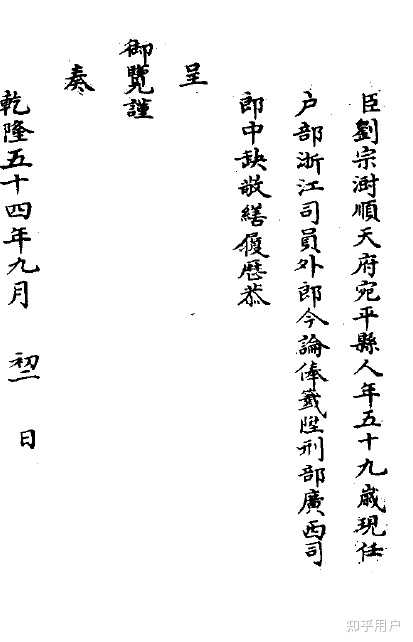 臣劉宗澍順天府宛平縣人年五十九歲現任
户部浙江司員外郎今論俸籤陞刑部廣西司
郎中缺敬繕履歷恭
呈
御覽謹
奏
乾隆五十四年九月 初二 日
知乎用户